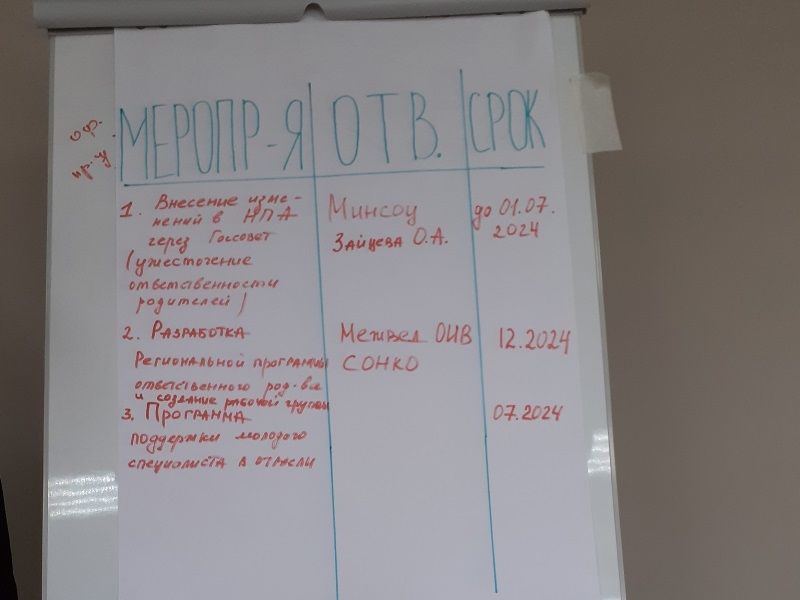 оф.
пр. у
МЕРОПР-Я ОТВ. СРОК
1. Внесение изме-
нений в НПА
через Госсовет
(ужесточение
ответственности
родителей)
Минсоц
Зайцева О.А.
до 01.07.
2024
2. Разработка
Региональной программы
ответственного род-ва
и создание рабочей группы
Межвед ОИВ
СОНКО
12.2024
3. Программа
поддержки молодого
специалиста в отрасли
07.2024